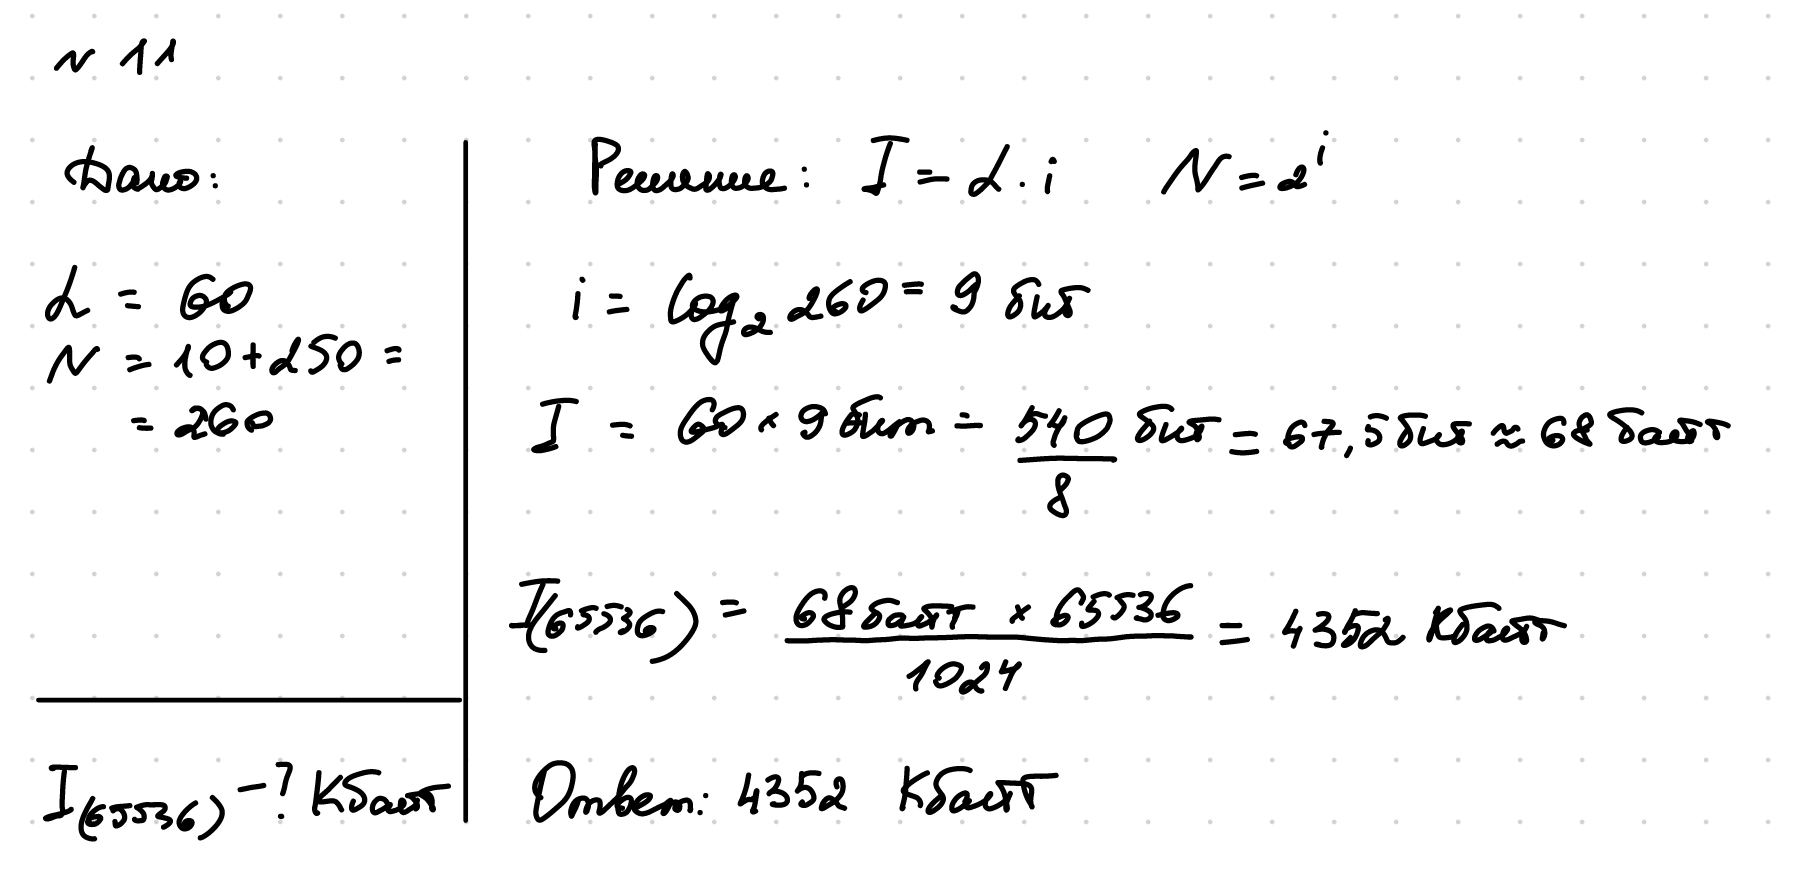 N 11
Дано:
L = 60
N = 10+250 =
= 260
I(65536) -? Кбайт
Решение: I = L · i N = 2^i
i = log₂ 260 = 9 бит
I = 60 × 9 бит = 540/8 бит = 67,5 бит ≈ 68 байт
I(65536) = 68 байт × 65536 / 1024 = 4352 Кбайт
Ответ: 4352 Кбайт